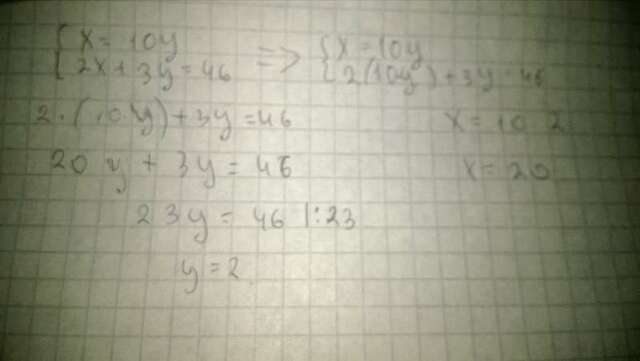 { x = 10y
{ 2x + 3y = 46 => { x = 10y
{ 2(10y) + 3y = 46
2 · (10 · y) + 3y = 46
20 y + 3y = 46
23y = 46 |:23
y = 2
x = 10 · 2
x = 20